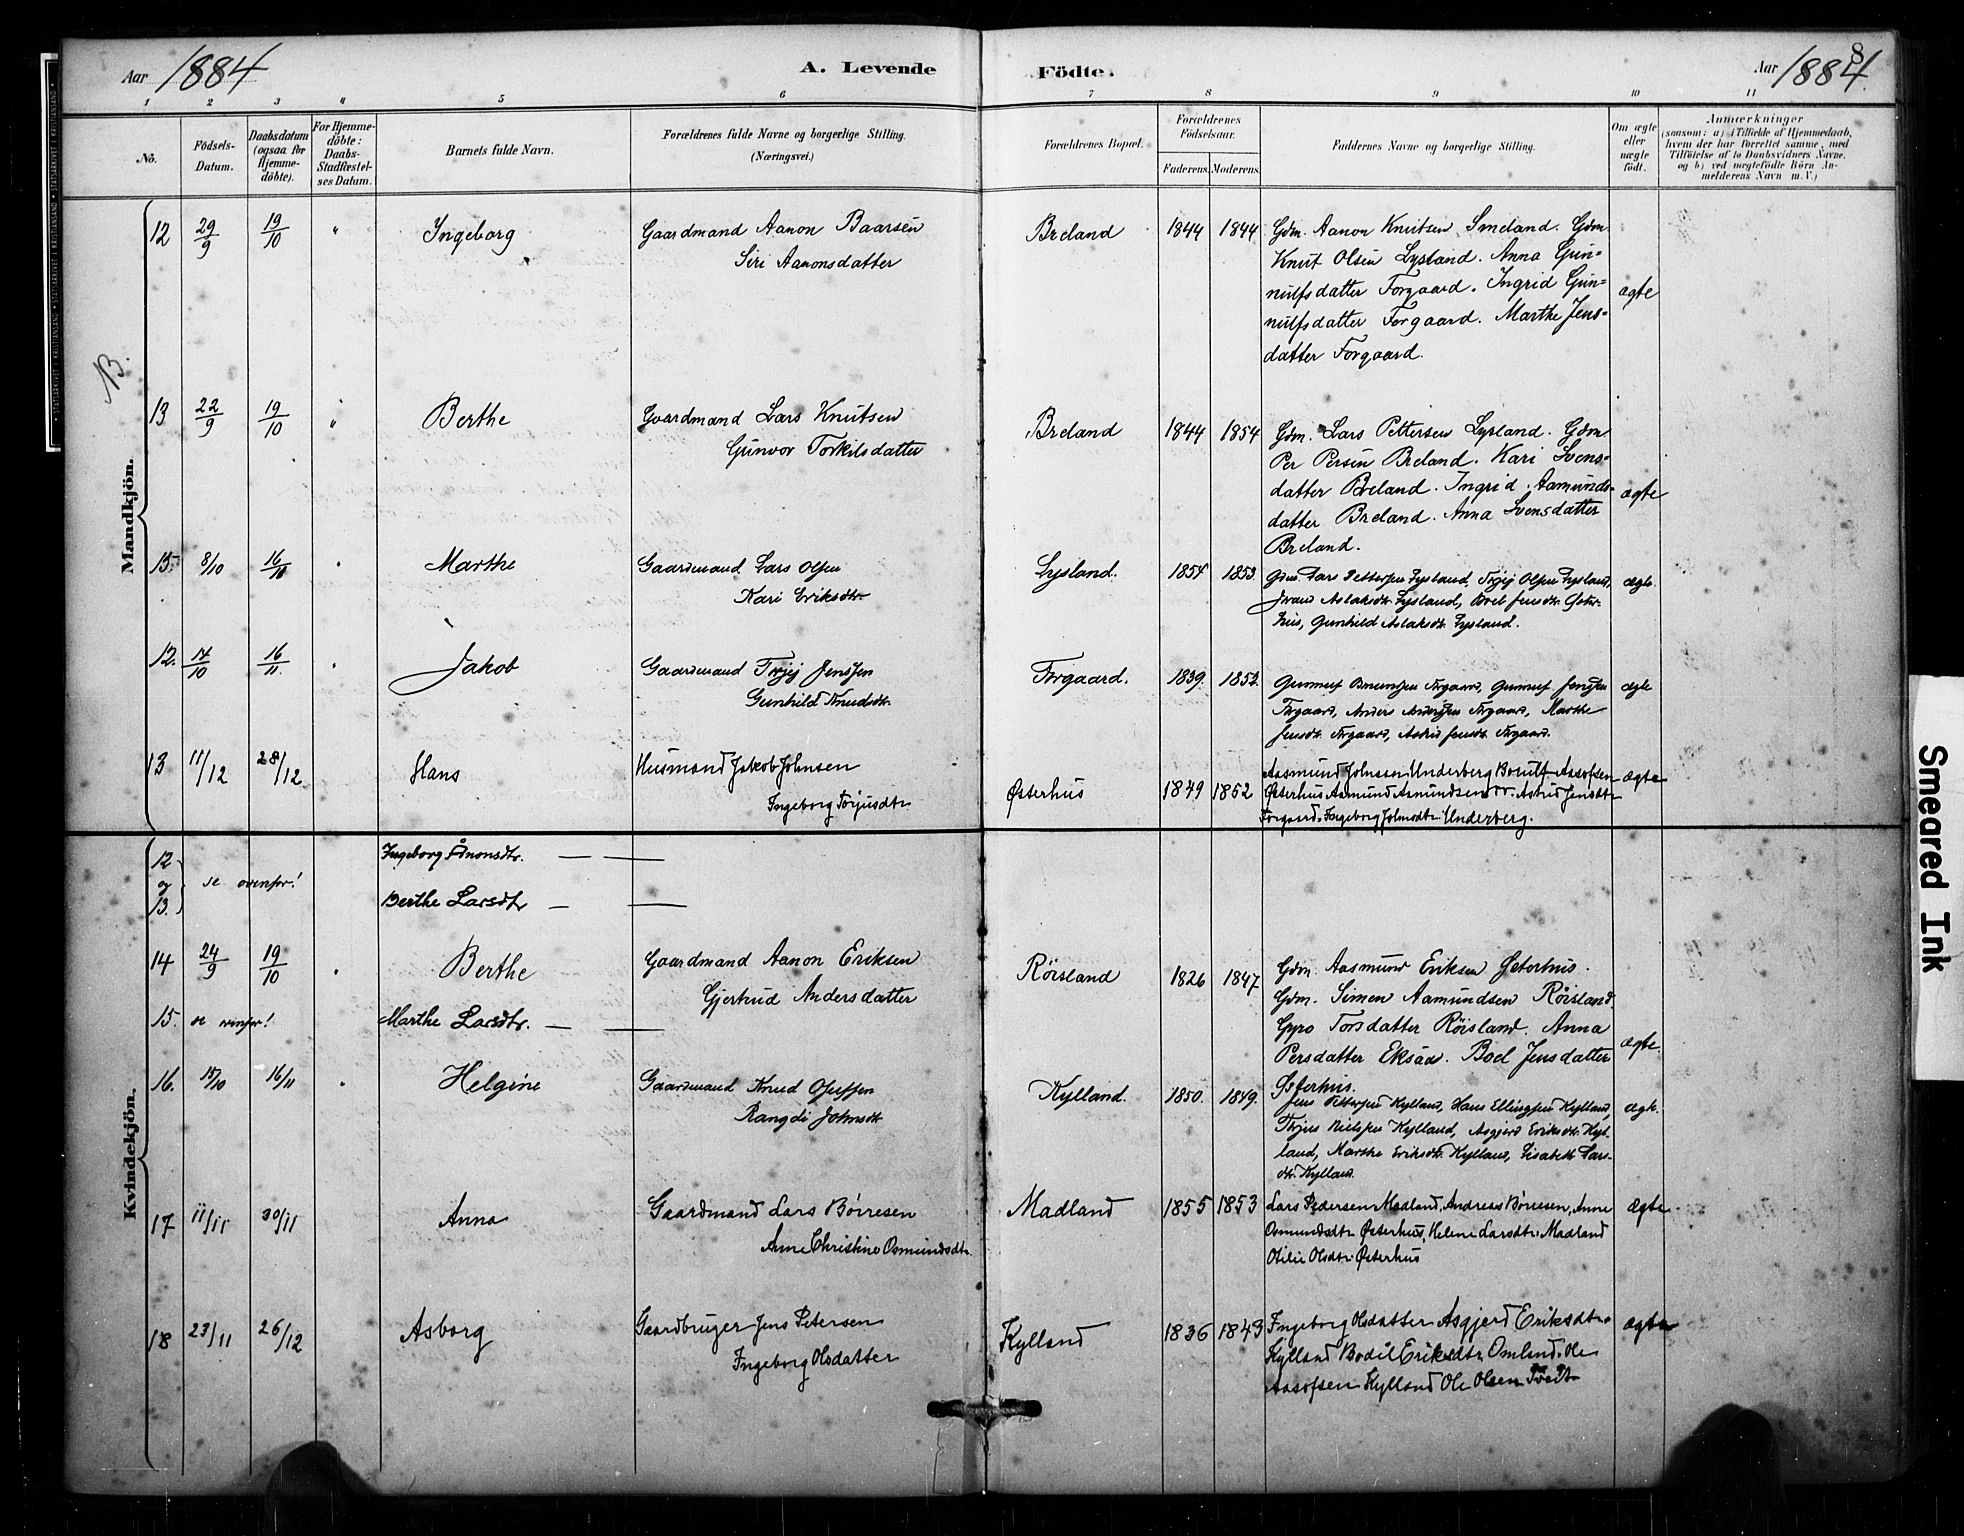 Aar 1884
A. Levende
Födte.
Aar 1884.
8
1 2 3 4 5 6 7 8 9 10 11
No.
Födsels-
Datum.
Daabsdatum
(ogsaa for
Hjemme-
döbte).
For Hjemme-
döbte:
Daabs-
Stadfæstel-
ses Datum.
Barnets fulde Navn.
Forældrenes fulde Navne og borgerlige Stilling.
(Næringsvei.)
Forældrenes Bopæl.
Forældrenes
Födselsaar.
Faderens. Moderens.
Faddernes Navne og borgerlige Stilling.
Om ægte
eller
uægte
födt.
Anmærkninger
(saasom: a) i Tilfælde af Hjemmedaab,
hvem der har forrettet samme, med
Tilföielse af to Daabsvidners Navne,
og b) ved uægtefödte Börn An-
melderens Navn m. V.)
NB.
Mandkjön.
12 29/9 19/10 " Ingeborg
Gaardmand Aanon Baarsen
Siri Aanonsdatter
Breland 1844 1844
Gdm. Aanon Knutsen Smeland. Gdm.
Knut Olsen Lysland. Anna Gun=
nulfsdatter Forgaard. Ingrid Gun=
nulfsdatter Forgaard. Marthe Jens=
datter Forgaard.
ægte
13 22/9 19/10 " Berthe
Gaardmand Lars Knutsen
Gunvor Torkilsdatter
Breland 1844 1854
Gdm. Lars Pettersen Lysland. Gdm.
Per Persen Breland. Kari Svens=
datter Breland. Ingrid Aamunds=
datter Breland. Anna Svensdatter
Breland.
ægte
15. 8/10 16/11 " Marthe
Gaardmand Lars Olsen
Kari Eriksdtr.
Lysland. 1854 1853.
Gdm. Lars Pettersen Lysland, Torjej Olsen Lysland,
Aslaksdtr. Lysland, Boel Jensdtr. Øster-
hus, Gunhild Aslaksdtr. Lysland.
ægte.
12. 17/10 16/11. " Jakob
Gaardmand Torjej Jenssen
Gunhild Knudsdtr.
Forgaard. 1839. 1852.
Gunnulf Forgaard, Gunnulf Jenssen
Forgaard, Anders Andersen Forgaard, Marthe
Jensdtr. Forgaard, Astrid Jensdtr. Forgaard.
ægte
13 11/12 28/12 Hans
Husmand Jakob Johnsen
Ingeborg Torjusdtr.
Østerhus 1849 1852
Aasmund Johnsen Underberg Bonulf Aasofsen
Østerhus Aamund Aamundsen Astrid Jensdtr.
Forgaard. Ingeborg Johnsdtr. Underberg.
ægte
Kvindekjön.
12
og
13.
se ovenfor!
Ingeborg Ånonsdtr. — —
Berthe Larsdtr — —
14 24/9 19/10 " Berthe
Gaardmand Aanon Eriksen
Gjertrud Andersdatter
Röisland 1826 1847
Gdm. Aasmund Eriksen Østerhus.
Gdm. Simen Aamundsen Röisland
Gyro Torsdatter Röisland. Anna
Persdatter Eksaa. Boel Jensdatter
Østerhus.
ægte.
15. se ovenfor! Marthe Larsdtr. — —
16. 15/10 16/11 " Helgine
Gaardmand Knud
Rangdi Johnsdtr.
Kylland. 1850. 1849.
Jens Pettersen Kylland, Hans Ellingsen Kylland,
Torjus Nielssen Kylland, Asgjerd Eriksdtr. Kyl-
land, Marthe Eriksdtr. Kylland, Lisabeth Lars-
dtr. Kylland.
ægte.
17 11/11 30/11 Anna
Gaardmand Lars Böiresen
Anne Christine Osmundsdtr.
Madland 1855 1853
Lars Pedersen Madland, Andreas Böiresen, Anne
Osmundsdtr. Østerhus, Helene Larsdtr. Madland
Otilie Olsdtr. Østerhus
ægte
18 23/11 26/12 Asborg
Gaardbruger Jens Petersen
Ingeborg Olsdatter
Kylland 1836 1843
Ingeborg Olsdatter Asgjerd Eriksdtr.
Kylland Bodil Eriksdtr. Omland. Ole
Aasofsen Kylland Ole Olsen Tvedt
ægte
Smeared Ink
STATSARKIVET I KRISTIANSAND